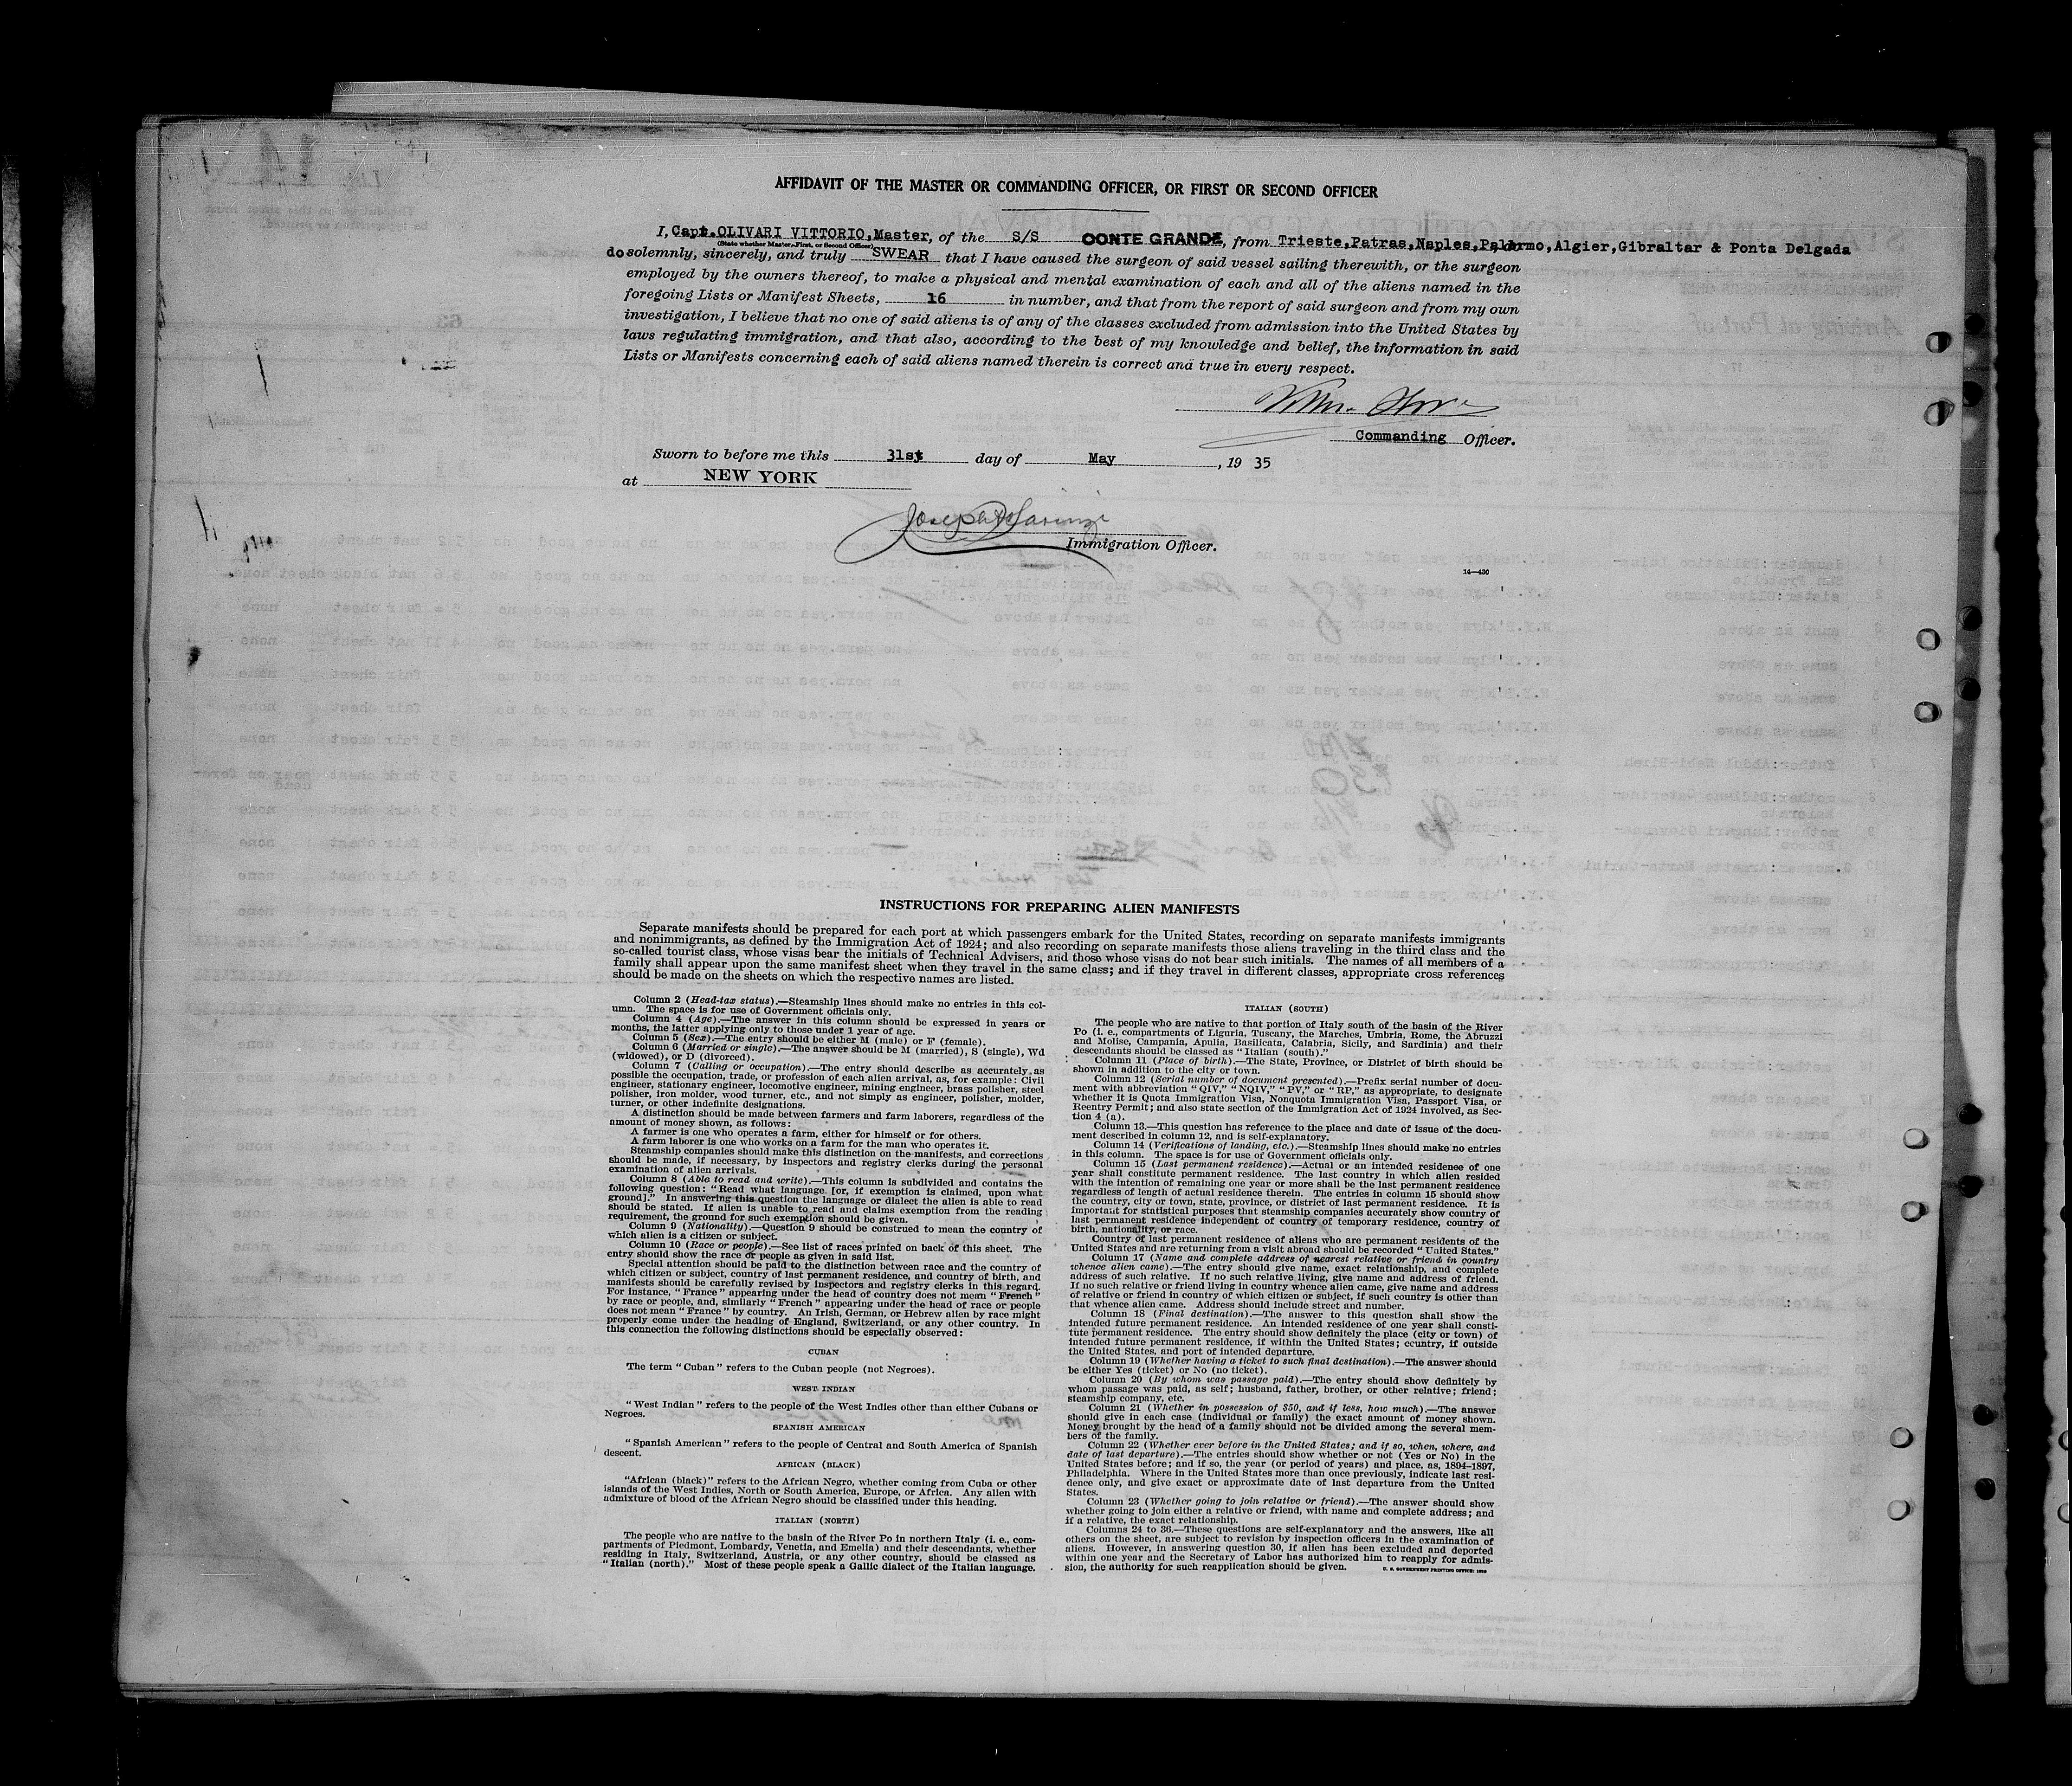 AFFIDAVIT OF THE MASTER OR COMMANDING OFFICER, OR FIRST OR SECOND OFFICER
I, Capt. OLIVARI VITTORIO, Master, of the S/S CONTE GRANDE, from Trieste,Patras,Naples,Palermo,Algier,Gibraltar & Ponta Delgada
(State whether Master, First, or Second Officer)
do solemnly, sincerely, and truly SWEAR that I have caused the surgeon of said vessel sailing therewith, or the surgeon
employed by the owners thereof, to make a physical and mental examination of each and all of the aliens named in the
foregoing Lists or Manifest Sheets, 16 in number, and that from the report of said surgeon and from my own
investigation, I believe that no one of said aliens is of any of the classes excluded from admission into the United States by
laws regulating immigration, and that also, according to the best of my knowledge and belief, the information in said
Lists or Manifests concerning each of said aliens named therein is correct and true in every respect.
Commanding Officer.
Sworn to before me this 31st day of May, 19 35
at NEW YORK
Immigration Officer.
14—430
INSTRUCTIONS FOR PREPARING ALIEN MANIFESTS
Separate manifests should be prepared for each port at which passengers embark for the United States, recording on separate manifests immigrants
and nonimmigrants, as defined by the Immigration Act of 1924; and also recording on separate manifests those aliens traveling in the third class and the
so-called tourist class, whose visas bear the initials of Technical Advisers, and those whose visas do not bear such initials. The names of all members of a
family shall appear upon the same manifest sheet when they travel in the same class; and if they travel in different classes, appropriate cross references
should be made on the sheets on which the respective names are listed.
Column 2 (Head-tax status).—Steamship lines should make no entries in this col-
umn. The space is for use of Government officials only.
Column 4 (Age).—The answer in this column should be expressed in years or
months, the latter applying only to those under 1 year of age.
Column 5 (Sex).—The entry should be either M (male) or F (female).
Column 6 (Married or single).—The answer should be M (married), S (single), Wd
(widowed), or D (divorced).
Column 7 (Calling or occupation).—The entry should describe as accurately as
possible the occupation, trade, or profession of each alien arrival, as, for example: Civil
engineer, stationary engineer, locomotive engineer, mining engineer, brass polisher, steel
polisher, iron molder, wood turner, etc., and not simply as engineer, polisher, molder,
turner, or other indefinite designations.
A distinction should be made between farmers and farm laborers, regardless of the
amount of money shown, as follows:
A farmer is one who operates a farm, either for himself or for others.
A farm laborer is one who works on a farm for the man who operates it.
Steamship companies should make this distinction on the manifests, and corrections
should be made, if necessary, by inspectors and registry clerks during the personal
examination of alien arrivals.
Column 8 (Able to read and write).—This column is subdivided and contains the
following question: “Read what language [or, if exemption is claimed, upon what
ground].” In answering this question the language or dialect the alien is able to read
should be stated. If alien is unable to read and claims exemption from the reading
requirement, the ground for such exemption should be given.
Column 9 (Nationality).—Question 9 should be construed to mean the country of
which alien is a citizen or subject.
Column 10 (Race or people).—See list of races printed on back of this sheet. The
entry should show the race or people as given in said list.
Special attention should be paid to the distinction between race and the country of
which citizen or subject, country of last permanent residence, and country of birth, and
manifests should be carefully revised by inspectors and registry clerks in this regard.
For instance, “France” appearing under the head of country does not mean “French”
by race or people, and, similarly “French” appearing under the head of race or people
does not mean “France” by country. An Irish, German, or Hebrew alien by race might
properly come under the heading of England, Switzerland, or any other country. In
this connection the following distinctions should be especially observed:
CUBAN
The term “Cuban” refers to the Cuban people (not Negroes).
WEST INDIAN
“West Indian” refers to the people of the West Indies other than either Cubans or
Negroes.
SPANISH AMERICAN
“Spanish American” refers to the people of Central and South America of Spanish
descent.
AFRICAN (BLACK)
“African (black)” refers to the African Negro, whether coming from Cuba or other
islands of the West Indies, North or South America, Europe, or Africa. Any alien with
admixture of blood of the African Negro should be classified under this heading.
ITALIAN (NORTH)
The people who are native to the basin of the River Po in northern Italy (i. e., com-
partments of Piedmont, Lombardy, Venetia, and Emelia) and their descendants, whether
residing in Italy, Switzerland, Austria, or any other country, should be classed as
“Italian (north).” Most of these people speak a Gallic dialect of the Italian language.
ITALIAN (SOUTH)
The people who are native to that portion of Italy south of the basin of the River
Po (i. e., compartments of Liguria, Tuscany, the Marches, Umbria, Rome, the Abruzzi
and Molise, Campania, Apulia, Basilicata, Calabria, Sicily, and Sardinia) and their
descendants should be classed as “Italian (south).”
Column 11 (Place of birth).—The State, Province, or District of birth should be
shown in addition to the city or town.
Column 12 (Serial number of document presented).—Prefix serial number of docu-
ment with abbreviation “QIV,” “NQIV,” “PV,” or “RP,” as appropriate, to designate
whether it is Quota Immigration Visa, Nonquota Immigration Visa, Passport Visa, or
Reentry Permit; and also state section of the Immigration Act of 1924 involved, as Sec-
tion 4 (a).
Column 13.—This question has reference to the place and date of issue of the docu-
ment described in column 12, and is self-explanatory.
Column 14 (Verifications of landing, etc.).—Steamship lines should make no entries
in this column. The space is for use of Government officials only.
Column 15 (Last permanent residence).—Actual or an intended residence of one
year shall constitute permanent residence. The last country in which alien resided
with the intention of remaining one year or more shall be the last permanent residence
regardless of length of actual residence therein. The entries in column 15 should show
the country, city or town, state, province, or district of last permanent residence. It is
important for statistical purposes that steamship companies accurately show country of
last permanent residence independent of country of temporary residence, country of
birth, nationality, or race.
Country of last permanent residence of aliens who are permanent residents of the
United States and are returning from a visit abroad should be recorded “United States.”
Column 17 (Name and complete address of nearest relative or friend in country
whence alien came).—The entry should give name, exact relationship, and complete
address of such relative. If no such relative living, give name and address of friend.
If no such relative or friend living in country whence alien came, give name and address
of relative or friend in country of which citizen or subject, if such country is other than
that whence alien came. Address should include street and number.
Column 18 (Final destination).—The answer to this question shall show the
intended future permanent residence. An intended residence of one year shall consti-
tute permanent residence. The entry should show definitely the place (city or town) of
intended future permanent residence, if within the United States; country, if outside
the United States, and port of intended departure.
Column 19 (Whether having a ticket to such final destination).—The answer should
be either Yes (ticket) or No (no ticket).
Column 20 (By whom was passage paid).—The entry should show definitely by
whom passage was paid, as self; husband, father, brother, or other relative; friend;
steamship company, etc.
Column 21 (Whether in possession of $50, and if less, how much).—The answer
should give in each case (individual or family) the exact amount of money shown.
Money brought by the head of a family should not be divided among the several mem-
bers of the family.
Column 22 (Whether ever before in the United States; and if so, when, where, and
date of last departure).—The entries should show whether or not (Yes or No) in the
United States before; and if so, the year (or period of years) and place, as, 1894–1897,
Philadelphia. Where in the United States more than once previously, indicate last resi-
dence only, and give exact or approximate date of last departure from the United
States.
Column 23 (Whether going to join relative or friend).—The answer should show
whether going to join either a relative or friend, with name and complete address; and
if a relative, the exact relationship.
Columns 24 to 36.—These questions are self-explanatory and the answers, like all
others on the sheet, are subject to revision by inspection officers in the examination of
aliens. However, in answering question 30, if alien has been excluded and deported
within one year and the Secretary of Labor has authorized him to reapply for admis-
sion, the authority for such reapplication should be given.
U. S. GOVERNMENT PRINTING OFFICE: